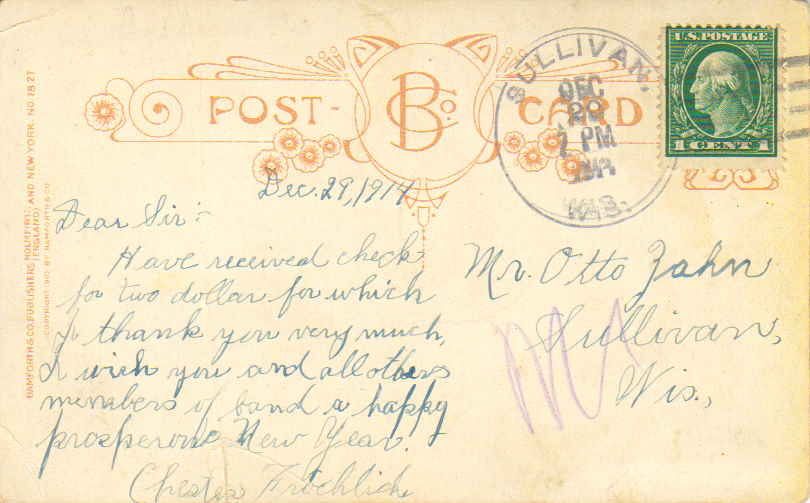 POST-
B Co.
CARD
SULLIVAN,
DEC
29
PM
WIS.
U.S. POSTAGE
1 CENTS 1
BAMFORTH & CO. PUBLISHERS HOLMFIRTH (ENGLAND) AND NEW YORK. NO. 1827
Dec. 29, 1914
Dear Sir:-
Have received check
for two dollar for which
I thank you very much,
I wish you and all others
members of band a happy
prosperous New Year.
Chester Froehlich
Mr. Otto Zahn
Sullivan,
Wis.,